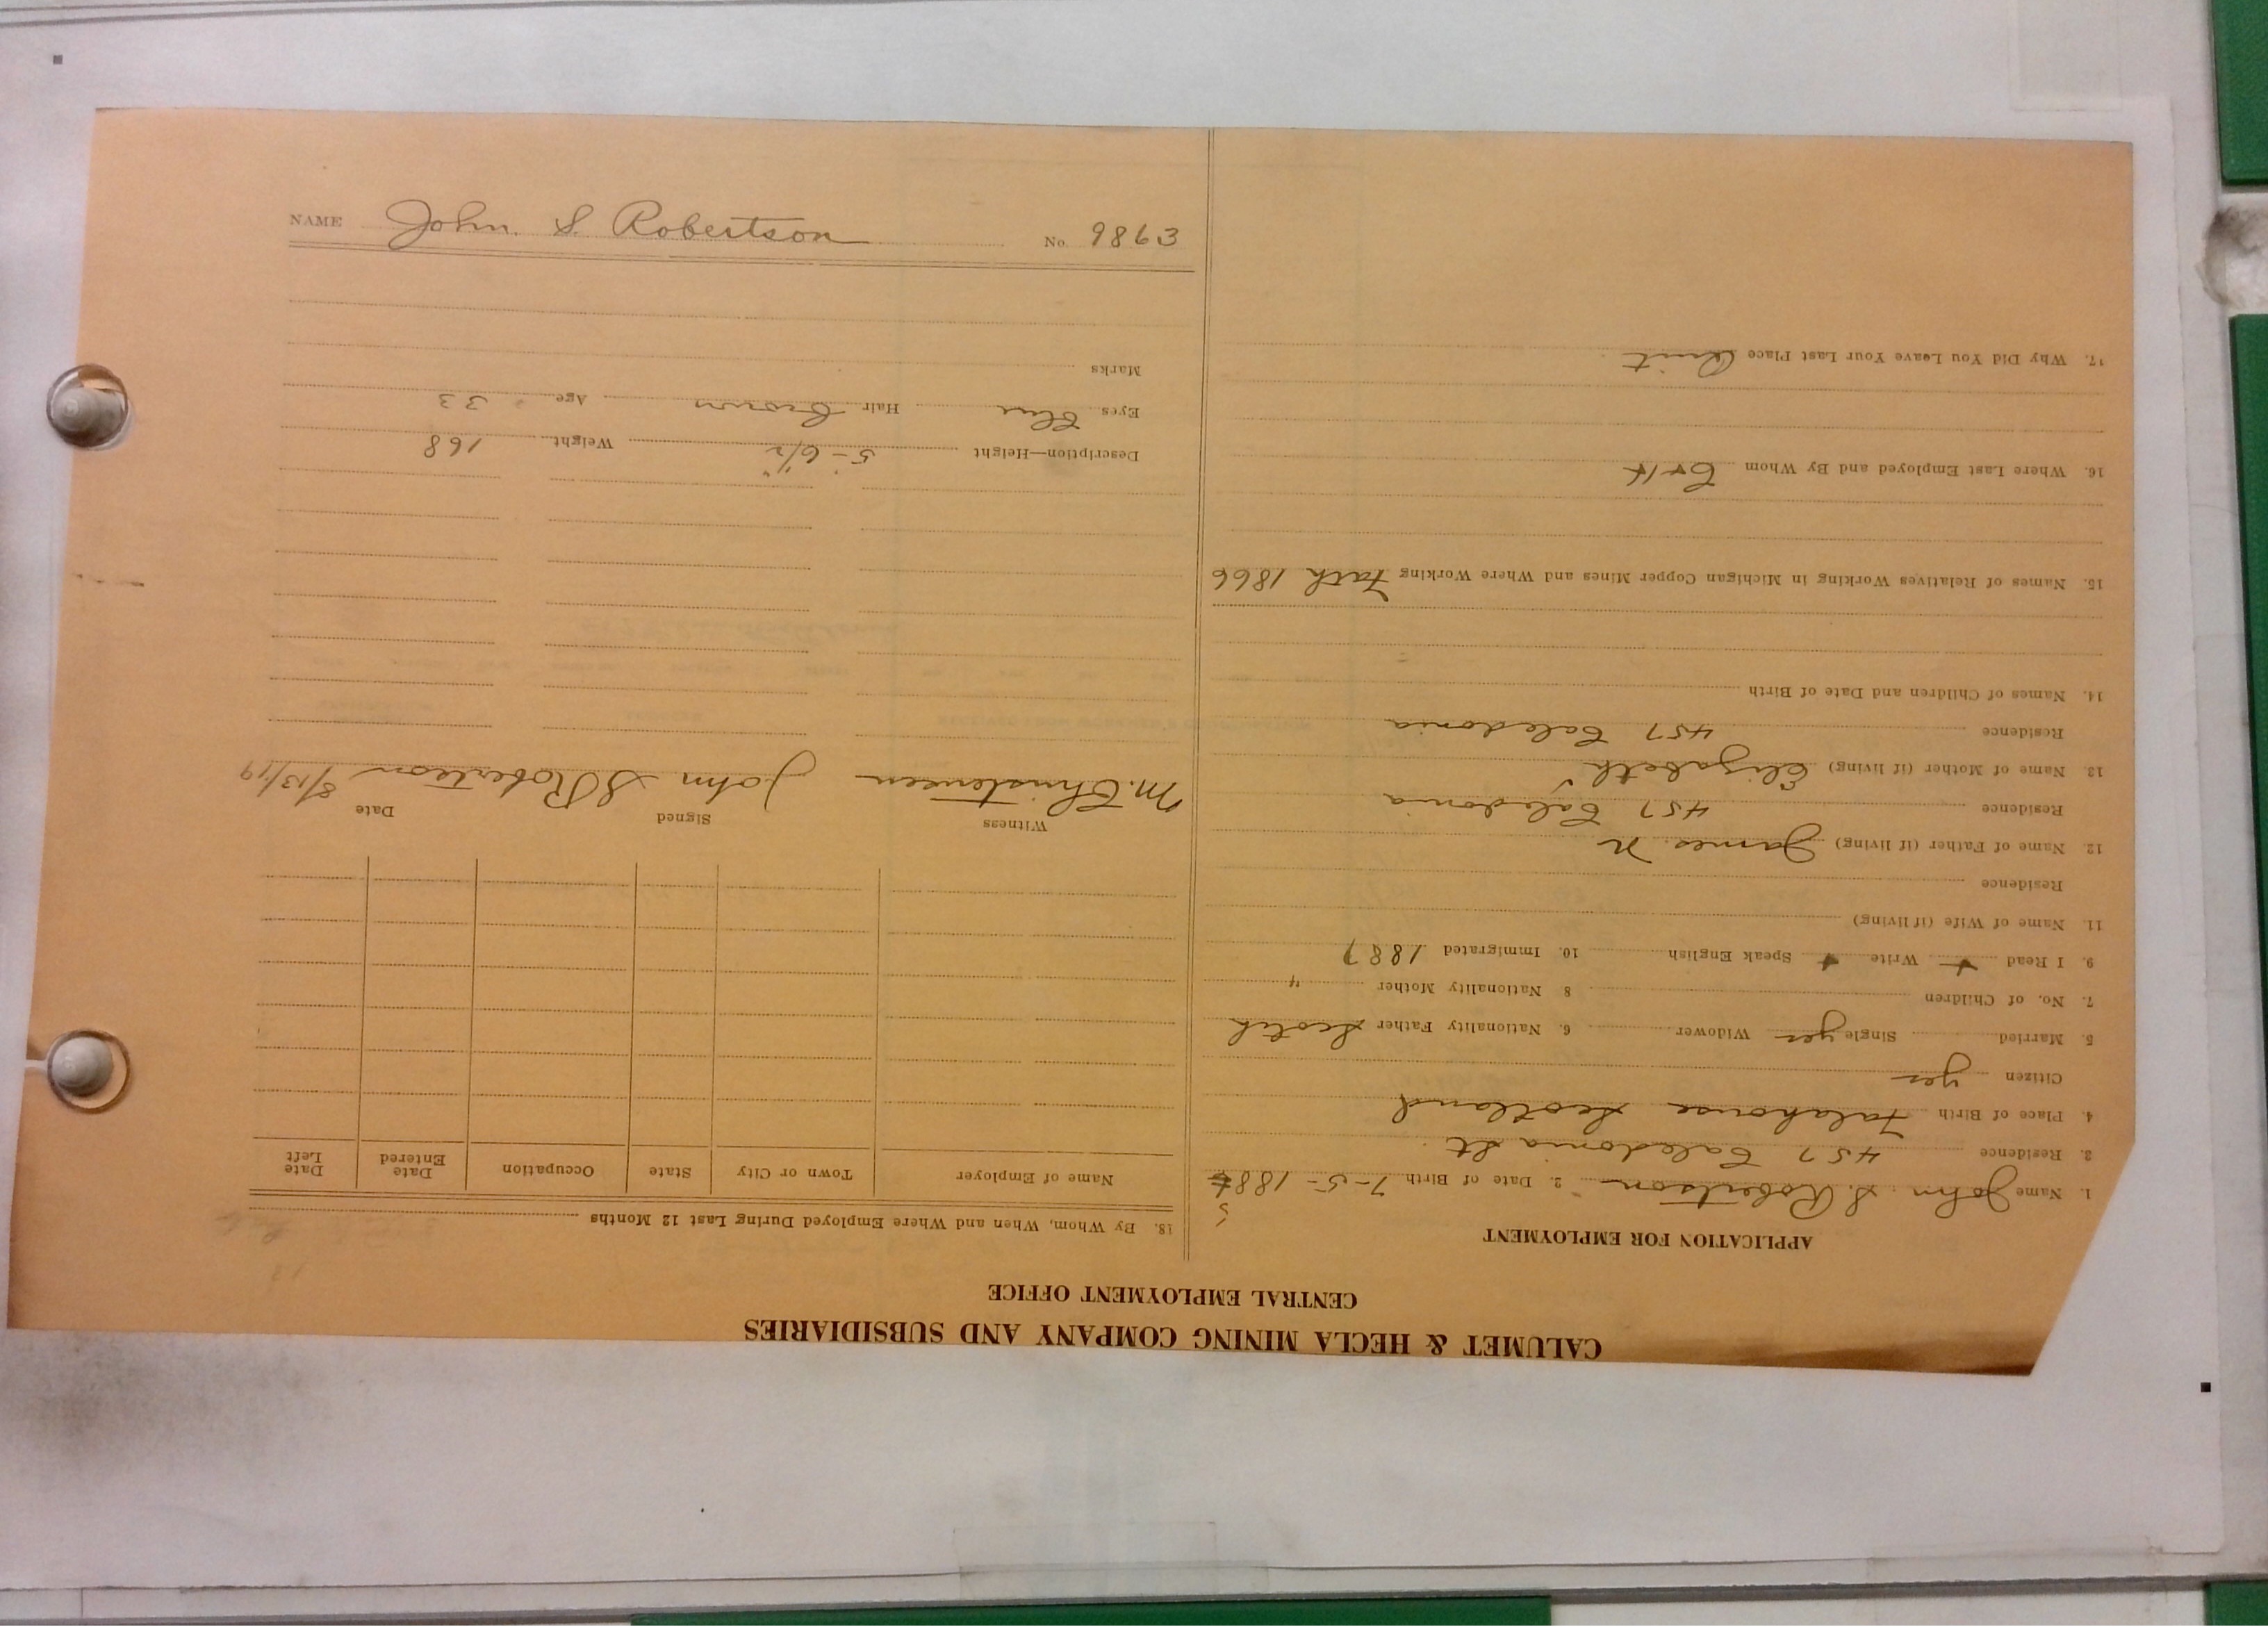 CALUMET & HECLA MINING COMPANY AND SUBSIDIARIES
CENTRAL EMPLOYMENT OFFICE
APPLICATION FOR EMPLOYMENT
1. Name John S. Robertson 2. Date of Birth 7-5-188 5
3. Residence 457 Caledonia St.
4. Place of Birth Falahouse Scotland
Citizen yes
5. Married Single yes Widower 6. Nationality Father Scotch
7. No. of Children 8 Nationality Mother "
9. I Read + Write + Speak English 10. Immigrated 1887
11. Name of Wife (if living)
Residence
12. Name of Father (if living) James N
Residence 457 Caledonia
13. Name of Mother (if living) Elizabeth
Residence 457 Caledonia
14. Names of Children and Date of Birth
15. Names of Relatives Working in Michigan Copper Mines and Where Working Fath 1866
16. Where Last Employed and By Whom C+H
17. Why Did You Leave Your Last Place Quit
18. By Whom, When and Where Employed During Last 12 Months
Name of Employer Town or City State Occupation Date Entered Date Left
Witness Signed Date
M. Christensen John S Robertson 8/13/19
Description—Height 5'-6 1/2" Weight 168
Eyes Blue Hair Brown Age 33
Marks
NAME John. S. Robertson No. 9863